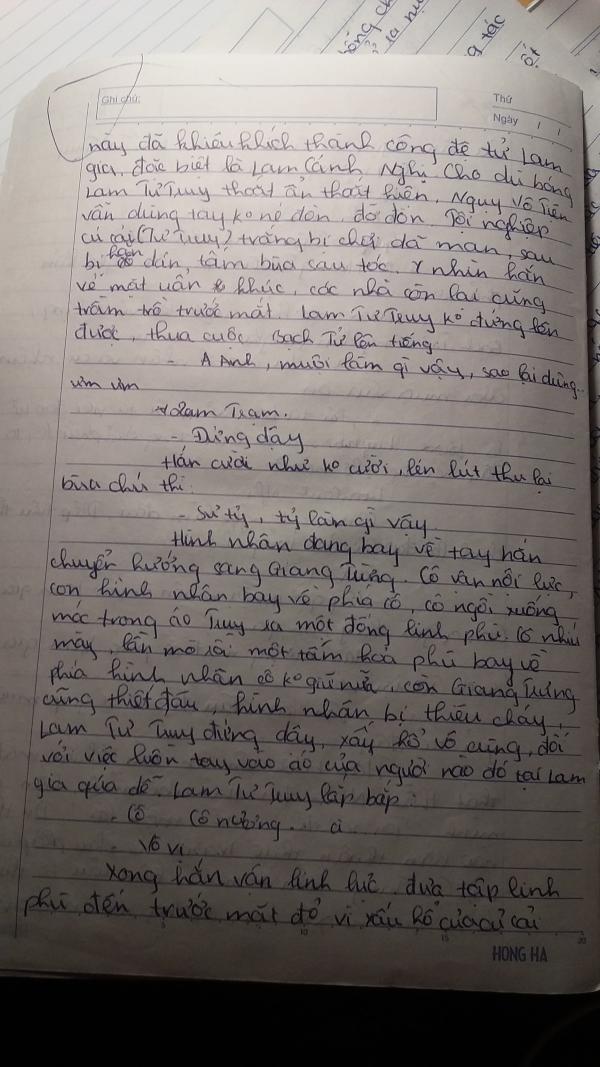 ống ch
ể ra nụ
g tác
ốt
Ghi chú:
Thứ
Ngày / /
này đã khiêu khích thành công đệ tử Lam
gia, đặc biệt là Lam Cảnh Nghi. Cho dù bóng
Lam Tư Truy thoắt ẩn thoắt hiện, Ngụy Vô Tiện
vẫn dùng tay ko né đòn, đỡ đòn. Tội nghiệp
củ cải (Tư Truy) trắng bị chơi dã man, sau
bị hắn dán, tấm bùa sau tóc. Y nhìn hắn
vẻ mặt uẩn khúc, các nhà còn lại cũng
trầm trồ trước mắt. Lam Tư Truy ko đứng lên
được, thua cuộc. Bạch Tử lên tiếng
- A Anh, muội làm gì vậy, sao lại dùng..
ưm ưm
Lam Trạm.
- Đứng dậy
Hắn cười như ko cười, lén lút thu lại
bùa chú thì.
- Sư tỷ, tỷ làm gì vậy
Hình nhân đang bay về tay hắn
chuyển hướng sang Giang Trừng. Cô vận nội lực,
con hình nhân bay về phía cô, cô ngồi xuống
móc trong áo Truy ra một đống linh phù. Cô nhíu
mày, lần mò rồi một tấm hoả phù bay về
phía hình nhân cô ko giữ nữa, còn Giang Trừng
cũng thiết đấu, hình nhân bị thiêu cháy,
Lam Tư Truy đứng dậy, xấu hổ vô cùng, đối
với việc luồn tay vào áo của người nào đó tại Lam
gia quá dễ. Lam Tư Truy lắp bắp:
- Cô Cô nương.
- Vô vị
Xong hắn vận linh lực đưa tập linh
phù đến trước mặt đỏ vì xấu hổ của củ cải
HONG HA